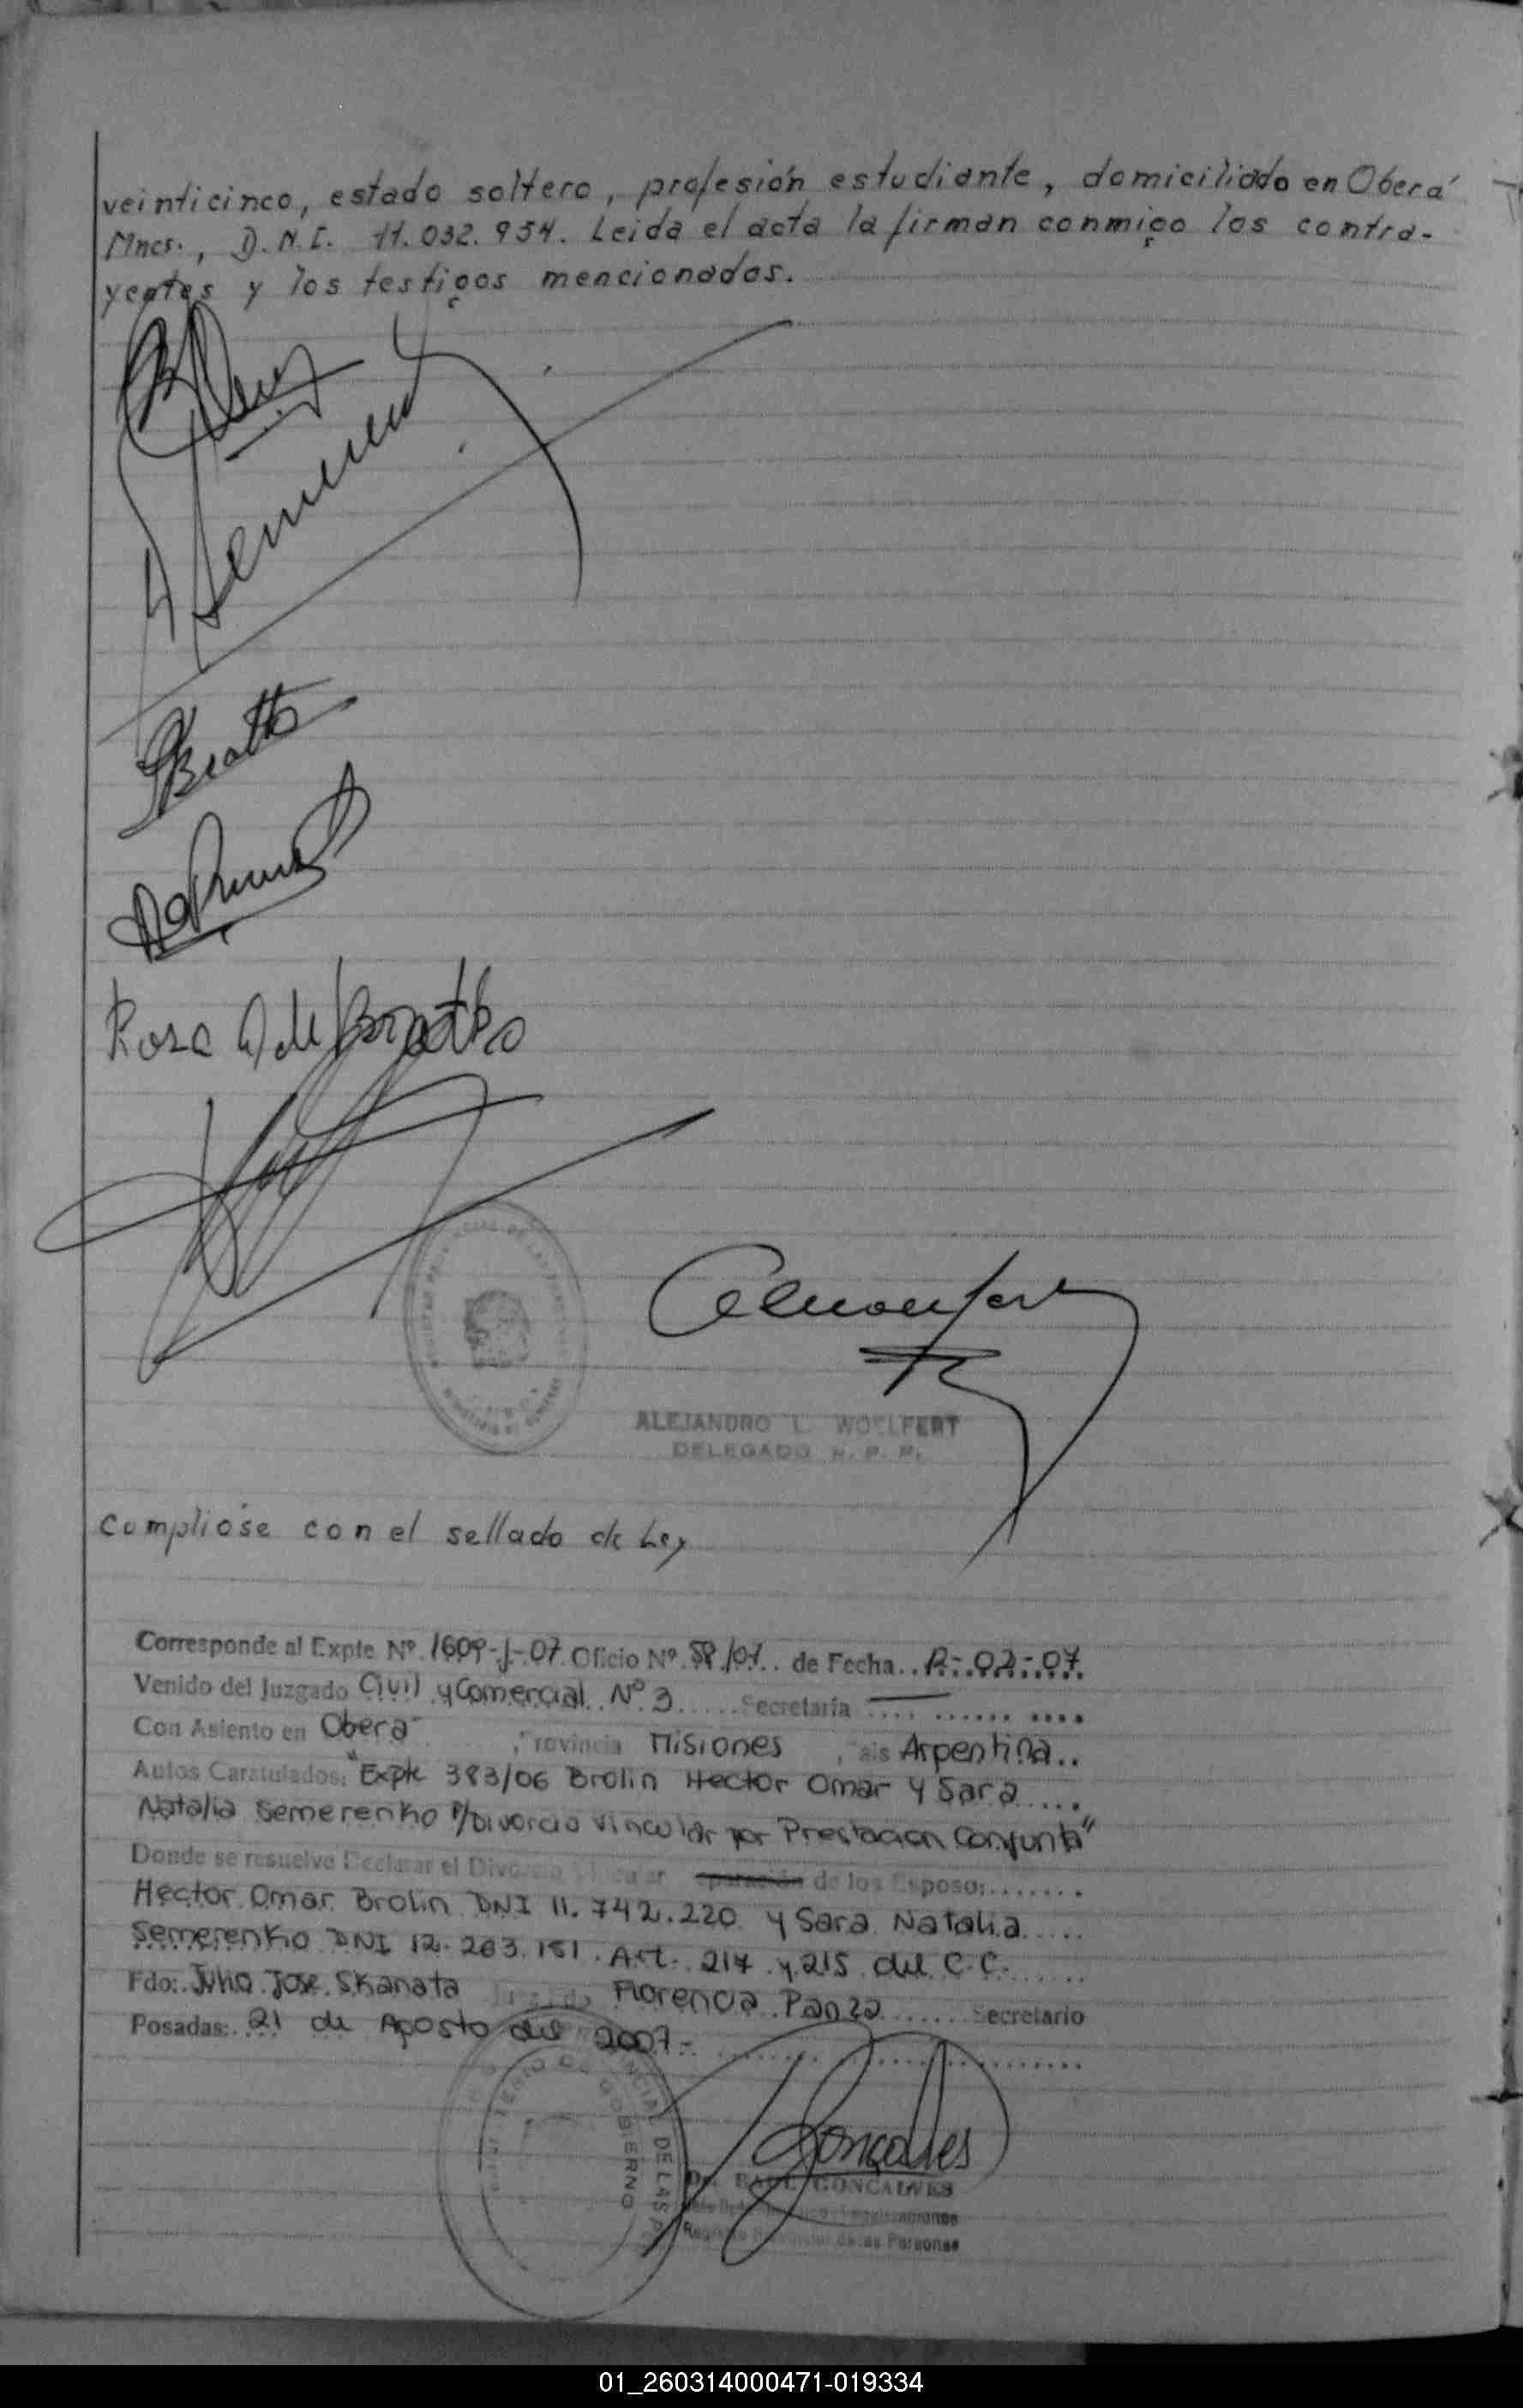 veinticinco, estado soltero, profesión estudiante, domiciliado en Oberá
Mnes., D.N.I. 11.032.954. Leida el acta la firman conmigo los contra-
yentes y los testigos mencionados.
Rosa de
ALEJANDRO L. WOELFERT
DELEGADO R. P. P.
Cumplióse con el sellado de Ley
Corresponde al Expte Nº 1609-J-07 Oficio Nº 58/07 de Fecha 12-02-07
Venido del Juzgado Civil y Comercial Nº 3 Secretaría
Con Asiento en Obera Provincia Misiones, Pais Argentina
Autos Caratulados: "Expte 383/06 Brolin Hector Omar y Sara
Natalia Semerenko P/Divorcio Vincular por Prestacion Conjunta"
Donde se resuelve Declarar el Divorcio Vincular de los Esposos:
Hector Omar Brolin DNI 11.742.220 y Sara Natalia
Semerenko DNI 12.263.151. Art. 214 y 215 del C.C.
Fdo: Julio Jose Skanata Florencia Panza Secretario
Posadas: 21 de Agosto del 2007-
Gonçalves
Dr. RAUL GONCALVES
Registro Provincial de las Personas
01_260314000471-019334